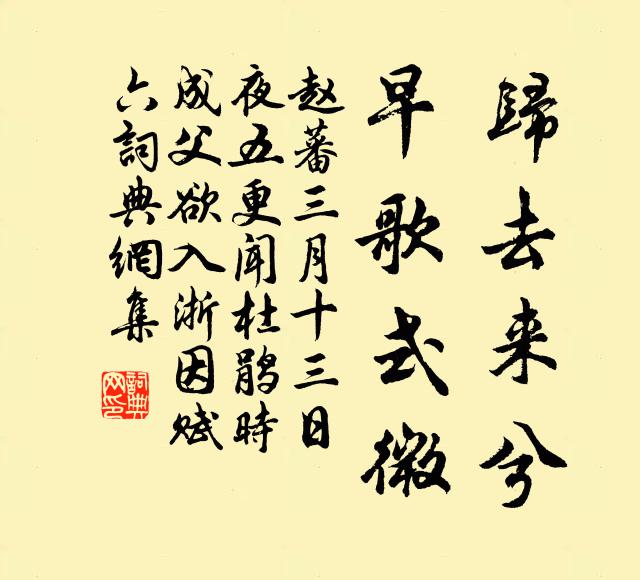 歸去来兮
早歌式微
赵蕃三月十三日
夜五更闻杜鹃時
成父欲入浙因赋
六詞典網集
詞典网印